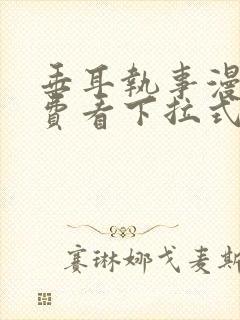 垂耳執事漫
費看下拉式
赛琳娜戈麦斯